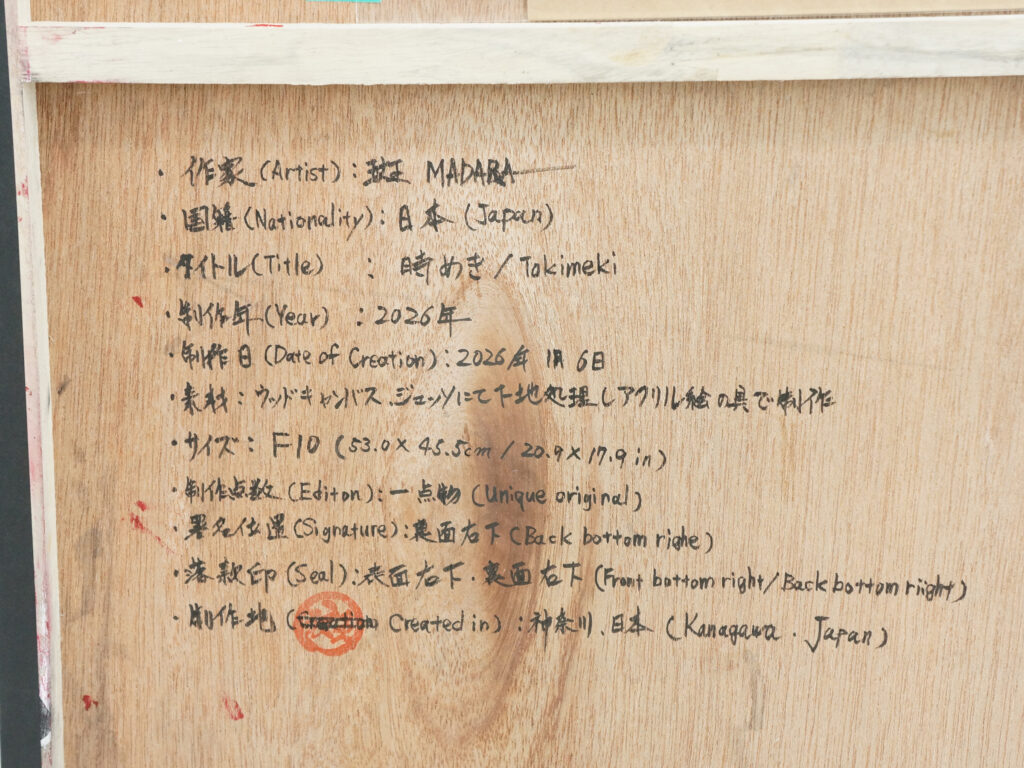 ・作家(Artist):斑 MADARA
・国籍(Nationality):日本(Japan)
・タイトル(Title) : 時めき/Tokimeki
・制作年(Year) :2026年
・制作日(Date of Creation):2026年1月6日
・素材:ウッドキャンバス.ジェッソにて下地処理しアクリル絵の具で制作
・サイズ: F10 (53.0×45.5cm / 20.9×17.9in)
・制作点数(Editon):一点物(Unique original)
・署名位置(Signature):裏面右下(Back bottom righe)
・落款印(Seal):表面右下.裏面右下(Front bottom right/Back bottom riight)
・制作地(Creation Created in):神奈川.日本(Kanagawa.Japan)